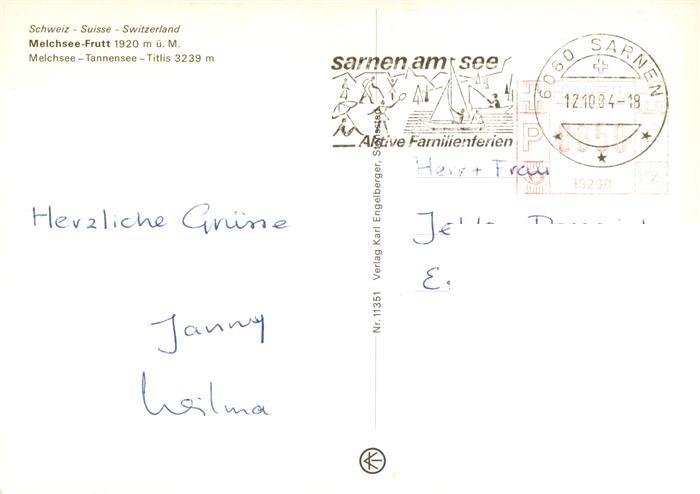 Schweiz - Suisse - Switzerland
Melchsee-Frutt 1920 m ü. M.
Melchsee – Tannensee – Titlis 3239 m
sarnen am see
Aktive Familienferien
6060 SARNEN
12.10.84-18
P
0050
19200
Herr + Frau
Herzliche Grüsse
Janny
Wilma
Nr. 11351 Verlag Karl Engelberger,